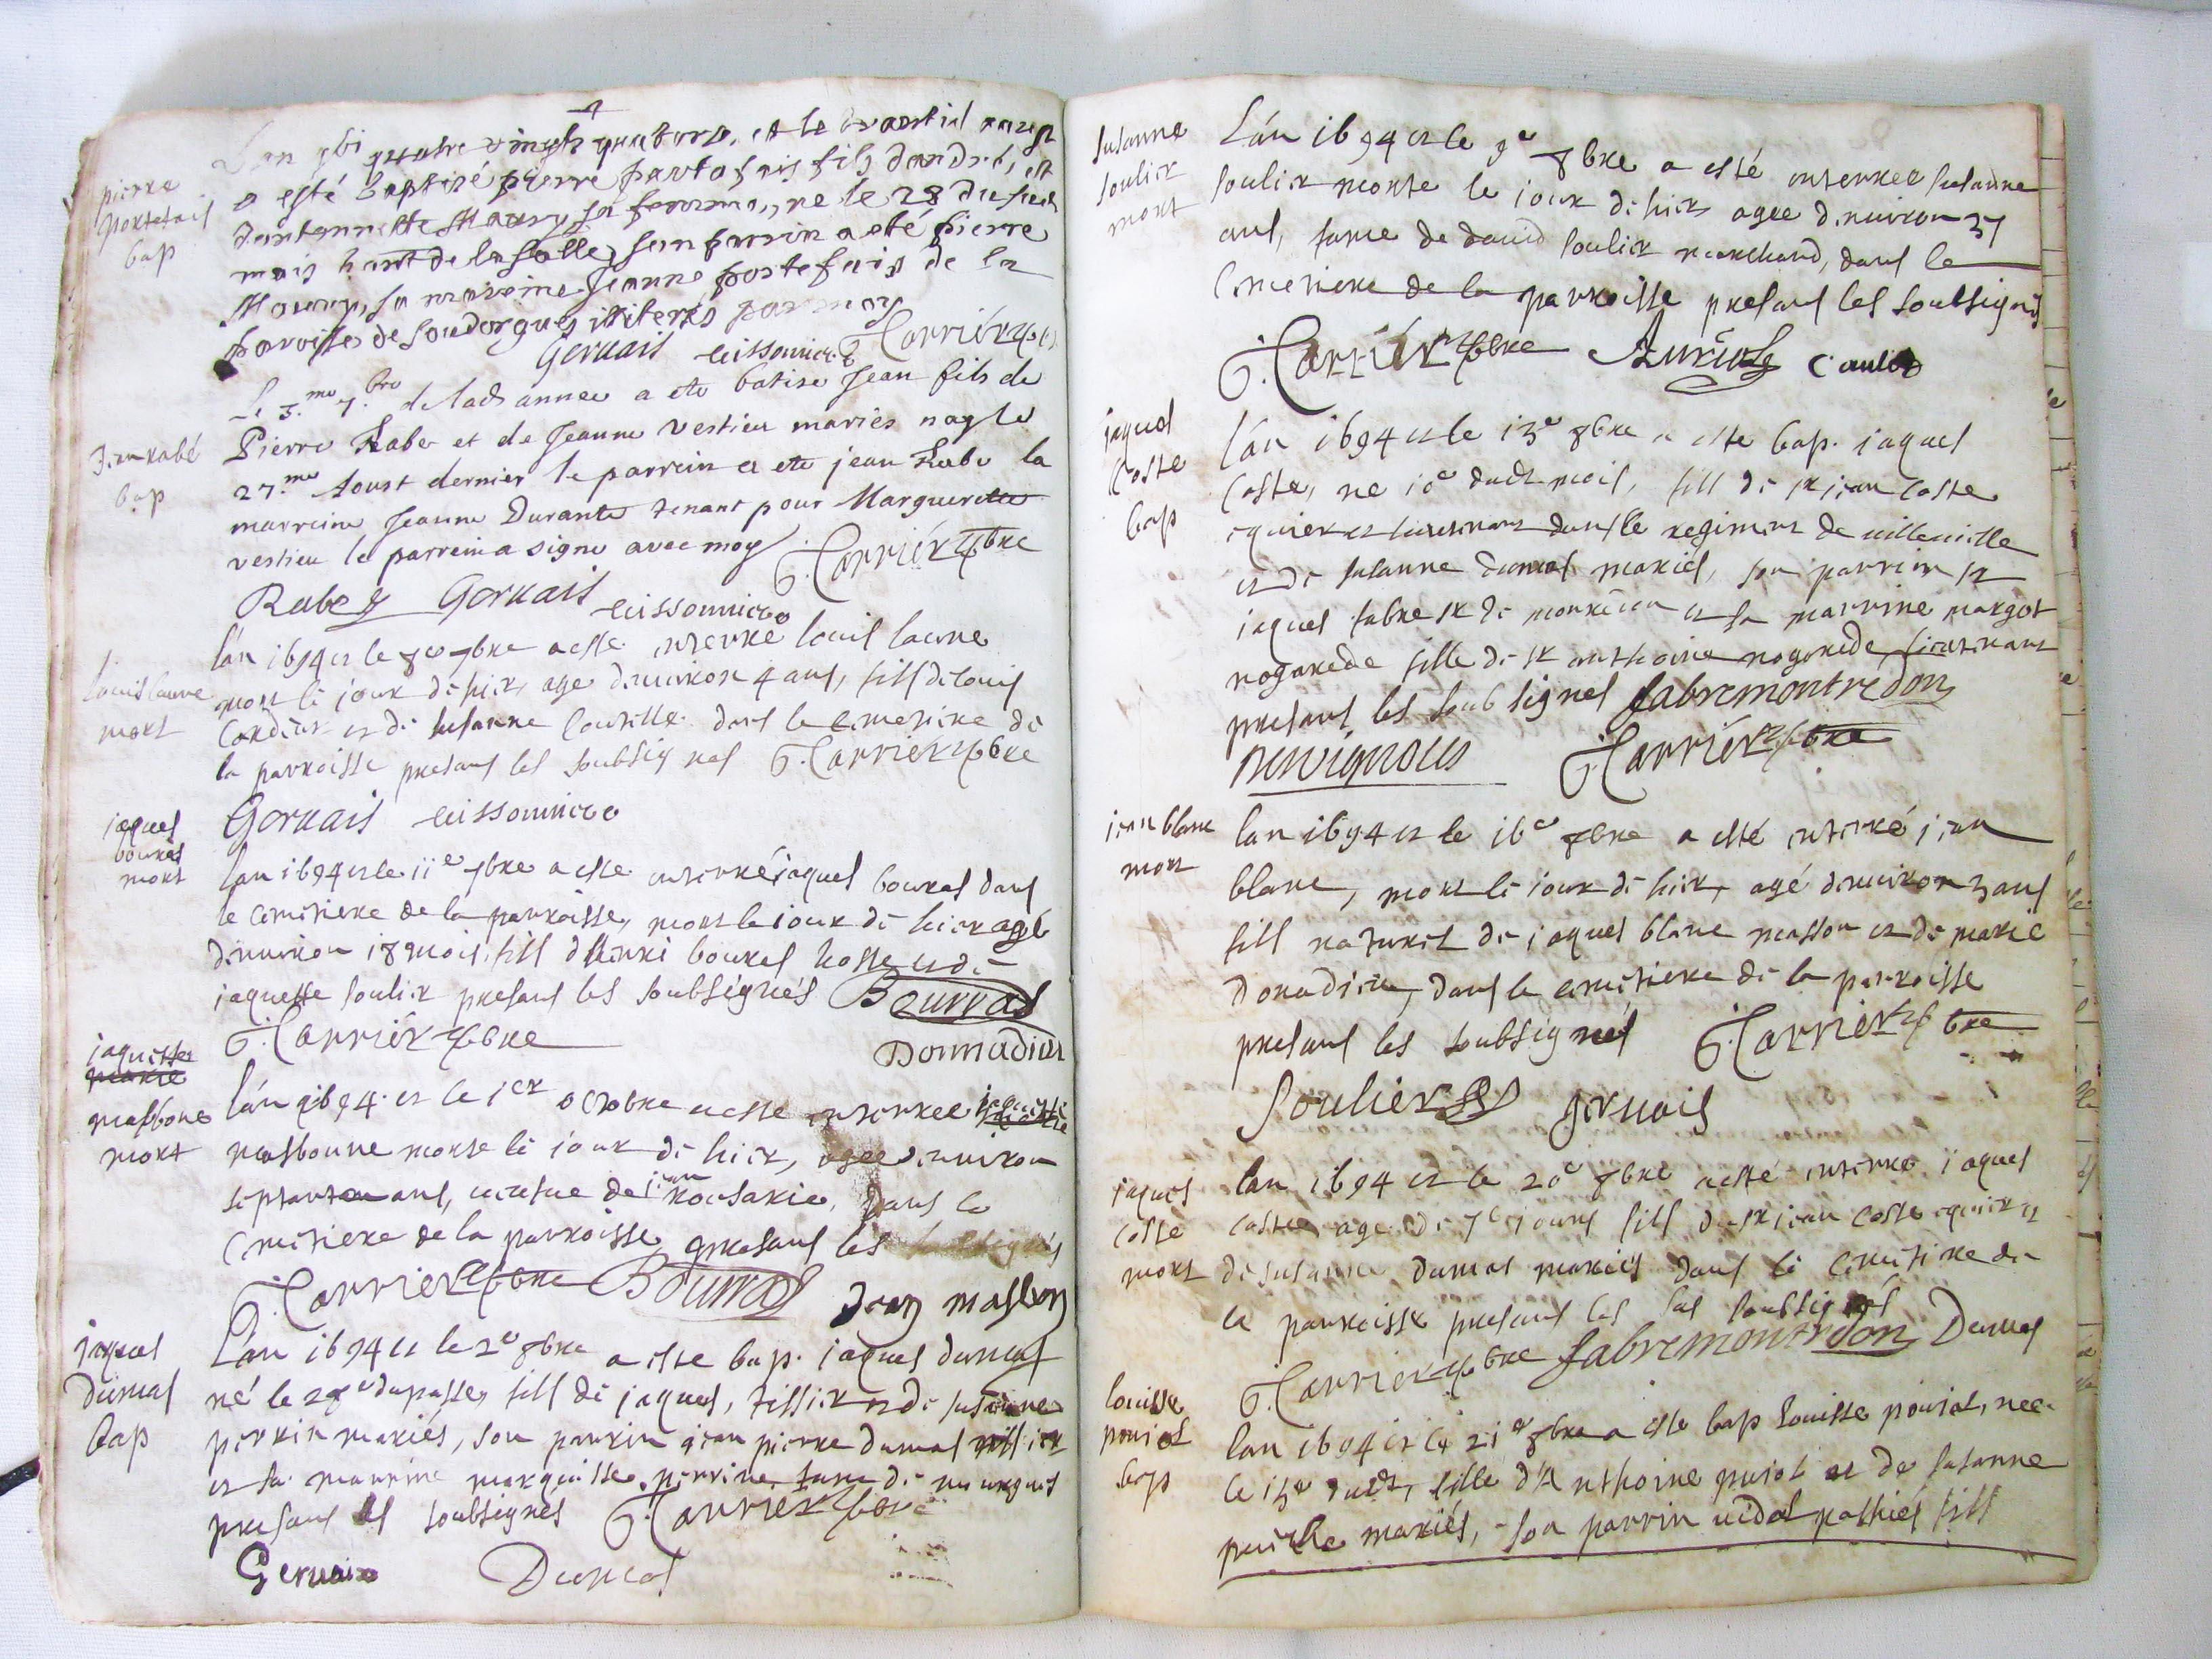 pierre
portefais
bap
quatre vingts quatorze, et le
a esté baptizé pierre portefais fils dandré, et
dantonnette Maury sa femme, ne le 28 du susd
mois de la Salle, son parrin a eté pierre
Maury, sa marrine Jeanne portefais de la
paroisse de Soudorgues illiterés par moy
Gervais Cissonniere G. Carrier pbre
Jean rabé
bap
Le 5.me 7.bre de lad annee a ete batise Jean fils de
Pierre Rabe et de Jeanne Vestieu mariés nay le
27.me Aoust dernier le parrein a ete jean Rabe la
marreine Jeanne Durante tenant pour Marguerite
vestieu le parrein a signe avec moy G. Carrier pbre
Rabe Gervais Cissonniere
Louis laune
mort
l'an 1694 et le 8e 7bre a esté enterré louis laune
mort le jour de hier, age denuiron 4 ans, fils de louis
Cordier et de susanne dans le cemetiere de
la parroisse presans les soubsignes G. Carrier pbre
Gervais Cissonniere
jaques
bouras
mort
lan 1694 et le 11e 7bre a este enterré jaques bouras dans
le cemetiere de la parroisse, mort le jour de hier agé
denuiron 18 mois, fils d'henri bouras hoste et de
jaquette soulier presans les soubsignés Bourras
G. Carrier pbre Donnadieu
jaquette
marie
masbone
mort
l'an 1694 et le 1er octobre a este enterree jaquette
masbonne morte le jour de hier, agee denuiron
septante ans, veufue de jean rousarie, dans le
cemetiere de la parroisse presans les soubsignés
G. Carrier pbre Bourras Jean masbon
jaques
dumas
bap
L'an 1694 et le 2e 8bre a este bap. jaques dumas
né le 28e du passe, fils de jaques, tissier et de susanne
perrin mariés, son parrin jean pierre dumas tissier
et sa marrine perrine fame de
presans les soubsignés G. Carrier pbre
Gervais Dumas
susanne
soulier
mort
L'an 1694 et le 9e 8bre a esté enterree susanne
soulier morte le jour de hier, agee denuiron 37
ans, fame de david soulier marchand, dans le
Cemetiere de la parroisse presans les soubsignés
G. Carrier pbre Auriol Caulet
jaques
Coste
bap
l'an 1694 et le 13e 8bre a este bap. jaques
Coste, ne 10e dudt mois, fils de sr jean Coste
equier et lieutenant dans le regiment de villeuielle
et de susanne dumas mariés, son parrin sr
jaques fabre sr de et sa marrine margot
nogarede fille de sr anthoine nogarede lieutenant
presans les soubsignes fabremontredon
G. Carrier pbre
jean blanc
mort
lan 1694 et le 16e 8bre a esté enterré jean
blanc, mort le jour de hier, agé denuiron 3 ans
fils naturel de jaques blanc masson et de marie
Donadieu, dans le cemetiere de la parroisse
presans les soubsignés G. Carrier pbre
Soulier gervais
jaques
coste
mort
lan 1694 et le 20e 8bre a esté enterré jaques
coste, age de jours fils de sr jean coste equier et
de susanne dumas mariés dans le cemetiere de
la parroisse presans les soubsignés
G. Carrier pbre fabremontredon Dumas
louisse
poujol
bap
lan 1694 et le 21e 8bre a este bap louisse poujol, nee
le 15e dudt, fille d'Anthoine pujol et de susanne
mariés, son parrin vidal fils